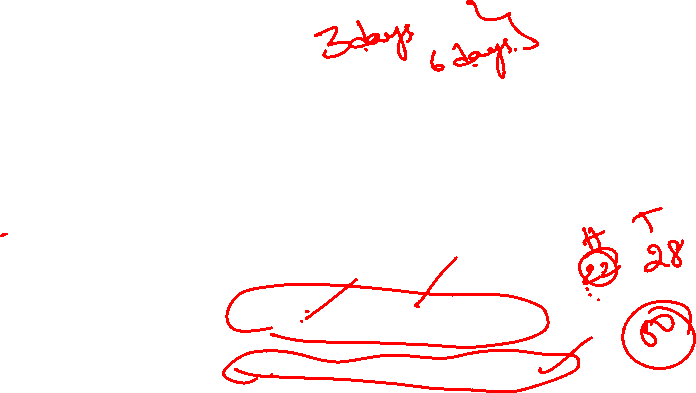 3 days
6 days.
H T
22 28
50